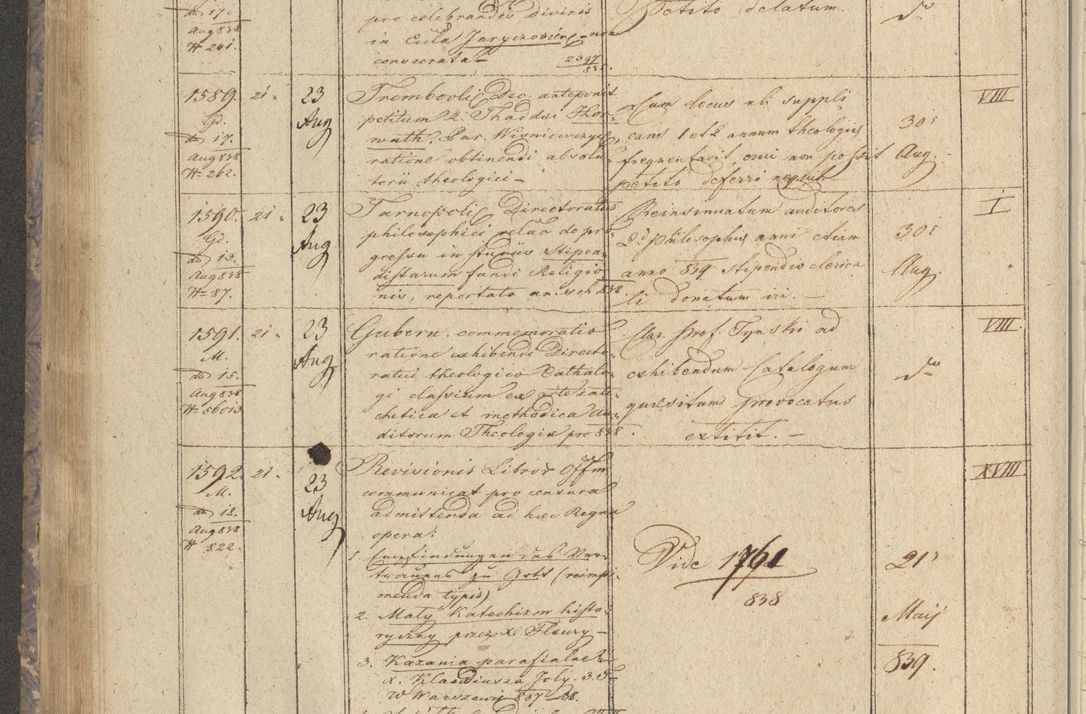 do 17.
Aug 838
N 241.
pro celebrandis divinis
in Eccla Jaryczoviensi non
consecrata
2397
838.
petito delatum.
dto
1589.
Gd.
do 17.
Aug 838
N 262.
21
23
Aug
Trembovli Dec. anteponit
petitum R. Thaddæi Hor-
wath, Par. Wisniowczyk,
ratione obtinendi absolu-
torii theologici
Cum locus ubi suppli
cans 1 et 2 annum theologiæ
frequentavit, ei non possit
petito deferri nequit
30
Aug.
VIII
1590.
Gd.
do 13.
Aug 838
N 87.
21
23
Aug
Tarnopoli Directoratus
philosophici relão de pro-
gressu in studiis Stipen-
distarum fundi Religio
nis, reportata an. sch. 838.
Reinsinuatum auditores
2di philosophiæ anni etiam
anno 839 stipendio clerica
li donatum iri.
30
Aug.
I
1591.
M.
do 15.
Aug 838
N 56013
21
23
Aug
Gubern. commemoratio
ratione exhibendi Directo-
ratui theologico Cathalo-
gi classium ex arte cate-
chetica et methodica Au-
ditorum Theologiæ pro 838.
Clar. Prof. Tynski ad
exhibendum Catalogum
quæsitum provocatus
extitit.
dto
VIII
1592.
M.
do 18.
Aug 838
N 822.
21
23
Aug
Revisionis Libror Offm
communicat pro censura
admittenda ad hæc Regna
opera:
1. Empfindungen des Ver-
trauens zu Gott (reimpri-
menda typis)
2. Maly Katechizm histo-
ryczny przez X. Fleury
3. Kazania parafialne
X. Klaudiusza Joly. 3. T
w Warszawie 837-38.
Vide 1761
838
21
Maij
839.
XVIII